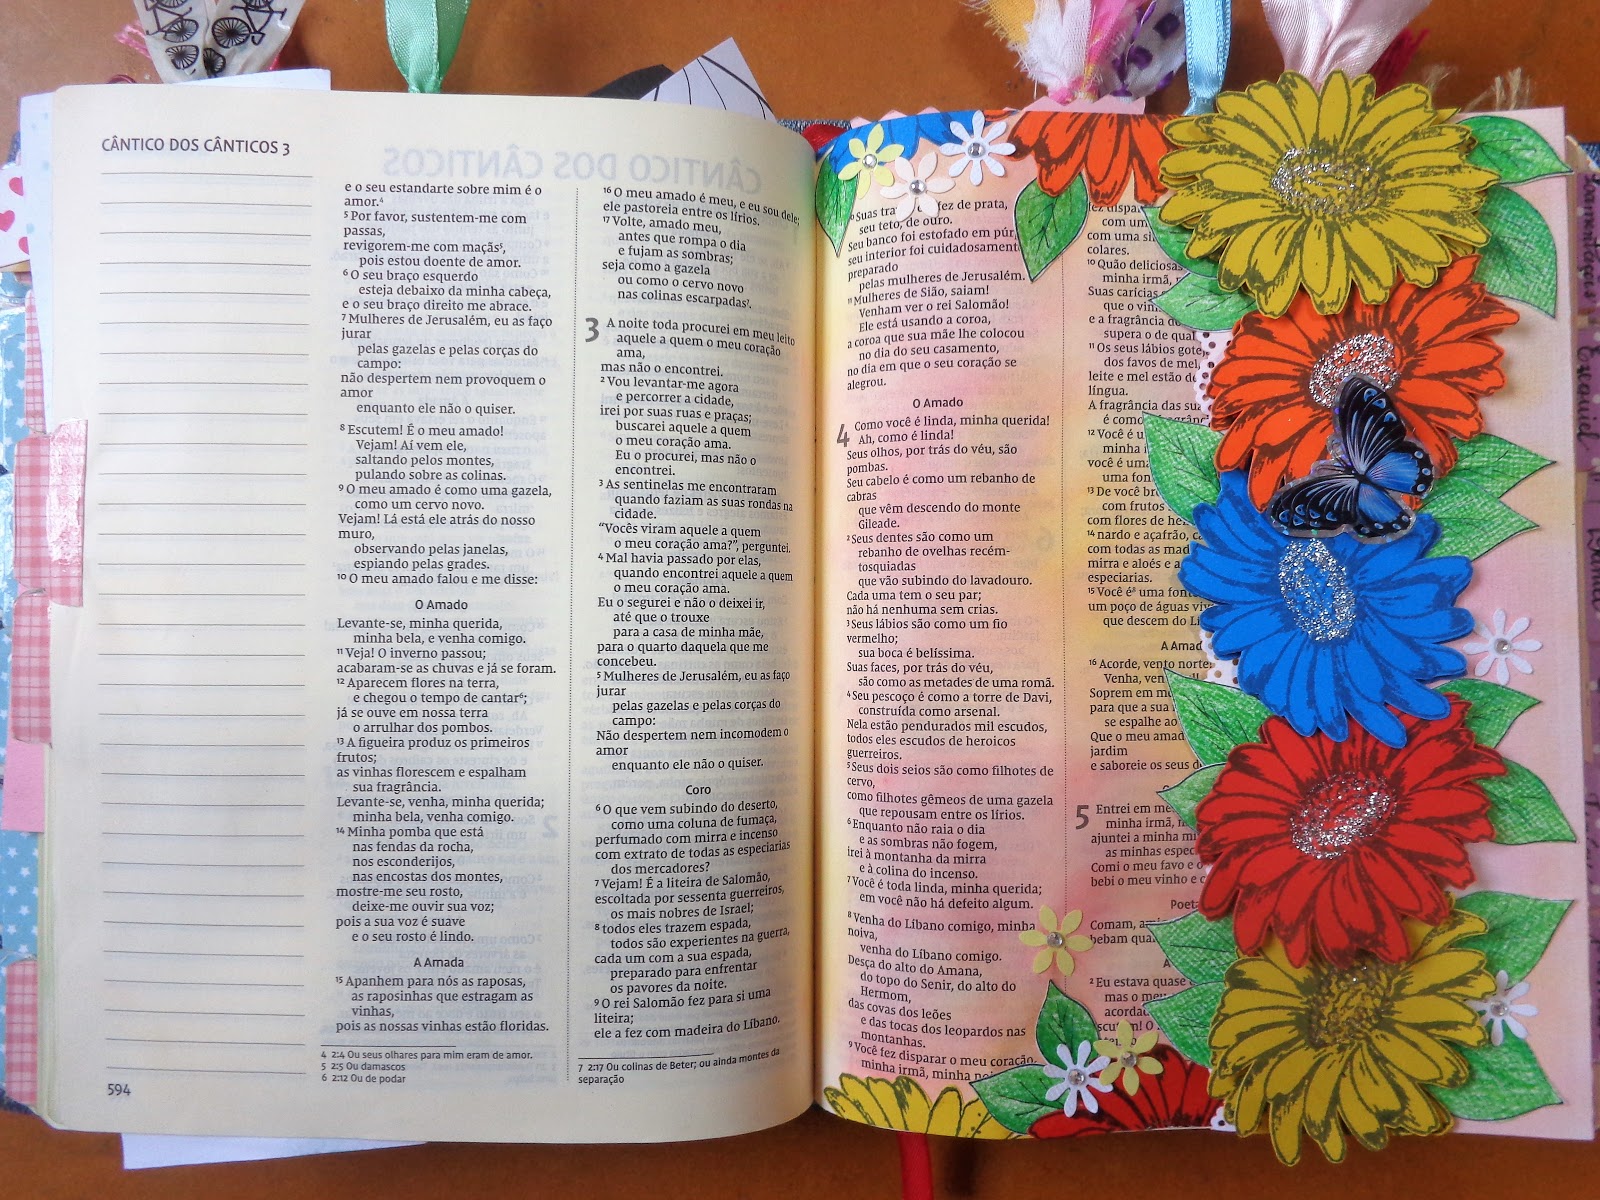 CÂNTICO DOS CÂNTICOS 3
e o seu estandarte sobre mim é o
amor.⁴
⁵ Por favor, sustentem-me com
passas,
revigorem-me com maçãs⁵,
pois estou doente de amor.
⁶ O seu braço esquerdo
esteja debaixo da minha cabeça,
e o seu braço direito me abrace.
⁷ Mulheres de Jerusalém, eu as faço
jurar
pelas gazelas e pelas corças do
campo:
não despertem nem provoquem o
amor
enquanto ele não o quiser.
⁸ Escutem! É o meu amado!
Vejam! Aí vem ele,
saltando pelos montes,
pulando sobre as colinas.
⁹ O meu amado é como uma gazela,
como um cervo novo.
Vejam! Lá está ele atrás do nosso
muro,
observando pelas janelas,
espiando pelas grades.
¹⁰ O meu amado falou e me disse:
O Amado
Levante-se, minha querida,
minha bela, e venha comigo.
¹¹ Veja! O inverno passou;
acabaram-se as chuvas e já se foram.
¹² Aparecem flores na terra,
e chegou o tempo de cantar⁶;
já se ouve em nossa terra
o arrulhar dos pombos.
¹³ A figueira produz os primeiros
frutos;
as vinhas florescem e espalham
sua fragrância.
Levante-se, venha, minha querida;
minha bela, venha comigo.
¹⁴ Minha pomba que está
nas fendas da rocha,
nos esconderijos,
nas encostas dos montes,
mostre-me seu rosto,
deixe-me ouvir sua voz;
pois a sua voz é suave
e o seu rosto é lindo.
A Amada
¹⁵ Apanhem para nós as raposas,
as raposinhas que estragam as
vinhas,
pois as nossas vinhas estão floridas.
4 2:4 Ou seus olhares para mim eram de amor.
5 2:5 Ou damascos
6 2:12 Ou de podar
594
¹⁶ O meu amado é meu, e eu sou dele;
ele pastoreia entre os lírios.
¹⁷ Volte, amado meu,
antes que rompa o dia
e fujam as sombras;
seja como a gazela
ou como o cervo novo
nas colinas escarpadas⁷.
3 A noite toda procurei em meu leito
aquele a quem o meu coração
ama,
mas não o encontrei.
² Vou levantar-me agora
e percorrer a cidade,
irei por suas ruas e praças;
buscarei aquele a quem
o meu coração ama.
Eu o procurei, mas não o
encontrei.
³ As sentinelas me encontraram
quando faziam as suas rondas na
cidade.
“Vocês viram aquele a quem
o meu coração ama?”, perguntei.
⁴ Mal havia passado por elas,
quando encontrei aquele a quem
o meu coração ama.
Eu o segurei e não o deixei ir,
até que o trouxe
para a casa de minha mãe,
para o quarto daquela que me
concebeu.
⁵ Mulheres de Jerusalém, eu as faço
jurar
pelas gazelas e pelas corças do
campo:
Não despertem nem incomodem o
amor
enquanto ele não o quiser.
Coro
⁶ O que vem subindo do deserto,
como uma coluna de fumaça,
perfumado com mirra e incenso
com extrato de todas as especiarias
dos mercadores?
⁷ Vejam! É a liteira de Salomão,
escoltada por sessenta guerreiros,
os mais nobres de Israel;
⁸ todos eles trazem espada,
todos são experientes na guerra,
cada um com a sua espada,
preparado para enfrentar
os pavores da noite.
⁹ O rei Salomão fez para si uma
liteira;
ele a fez com madeira do Líbano.
7 2:17 Ou colinas de Beter; ou ainda montes da
separação
Suas fez de prata,
seu teto, de ouro.
Seu banco foi estofado em
seu interior foi cuidadosament
preparado
pelas mulheres de Jerusalém.
¹¹ Mulheres de Sião, saiam!
Venham ver o rei Salomão!
Ele está usando a coroa,
a coroa que sua mãe lhe colocou
no dia do seu casamento,
no dia em que o seu coração se
alegrou.
O Amado
4 Como você é linda, minha querida!
Ah, como é linda!
Seus olhos, por trás do véu, são
pombas.
Seu cabelo é como um rebanho de
cabras
que vêm descendo do monte
Gileade.
² Seus dentes são como um
rebanho de ovelhas recém-
tosquiadas
que vão subindo do lavadouro.
Cada uma tem o seu par;
não há nenhuma sem crias.
³ Seus lábios são como um fio
vermelho;
sua boca é belíssima.
Suas faces, por trás do véu,
são como as metades de uma romã.
⁴ Seu pescoço é como a torre de Davi,
construída como arsenal.
Nela estão pendurados mil escudos,
todos eles escudos de heroicos
guerreiros.
⁵ Seus dois seios são como filhotes de
cervo,
como filhotes gêmeos de uma gazela
que repousam entre os lírios.
⁶ Enquanto não raia o dia
e as sombras não fogem,
irei à montanha da mirra
e à colina do incenso.
⁷ Você é toda linda, minha querida;
em você não há defeito algum.
⁸ Venha do Líbano comigo, minha
noiva,
venha do Líbano comigo.
Desça do alto do Amana,
do topo do Senir, do alto do
Hermom,
das covas dos leões
e das tocas dos leopardos nas
montanhas.
⁹ Você fez disparar o meu coração,
minha irmã, minha
com um
com uma
colares.
¹⁰ Quão deliciosas
minha irmã,
Suas carícias
que o
e a fragrância
supera o de
¹¹ Os seus lábios
dos favos de mel,
leite e mel estão
língua.
A fragrância das
é como
¹² Você é
minha
você é uma
uma
¹³ De você
com frutos
com flores de
¹⁴ nardo e açafrão,
com todas as
mirra e aloés e
especiarias.
¹⁵ Você é⁸ uma
um poço de águas
que descem do
A
¹⁶ Acorde, vento norte
Venha,
Soprem em
para que a sua
se espalhe ao
Que o meu
jardim
e saboreie os seus
5 Entrei em
minha irmã,
ajuntei a minha
as minhas
Comi o meu favo e
bebi o meu vinho e
Comam,
bebam
A
² Eu estava quase
mas o
Lamentações
Ezequiel